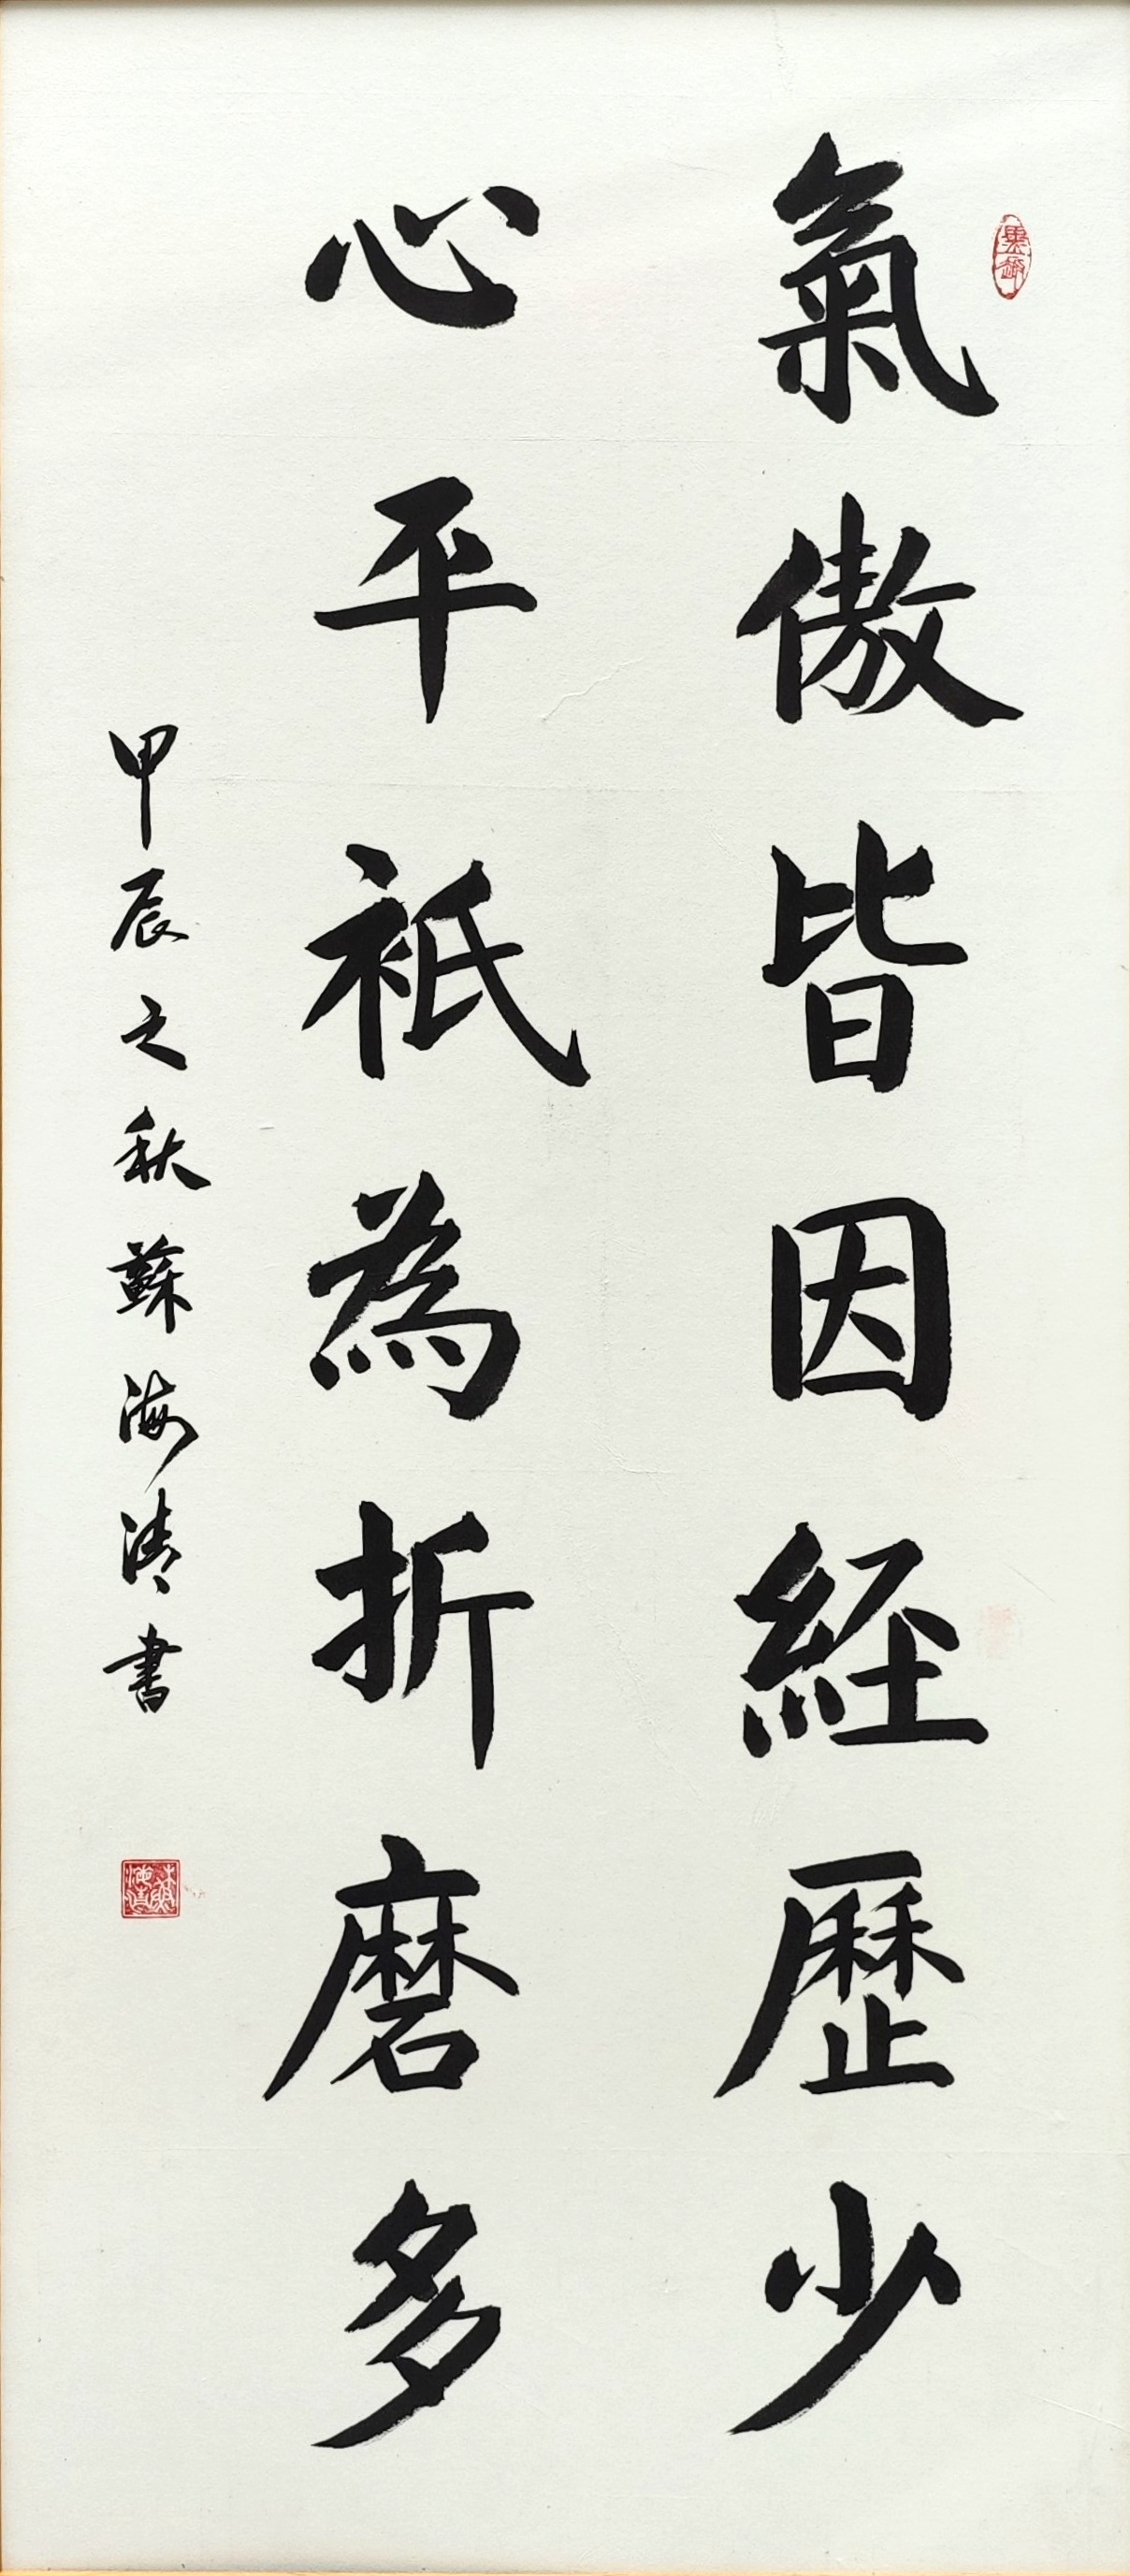 氣傲皆因経歷少
心平祇為折磨多
甲辰之秋蘇海清書